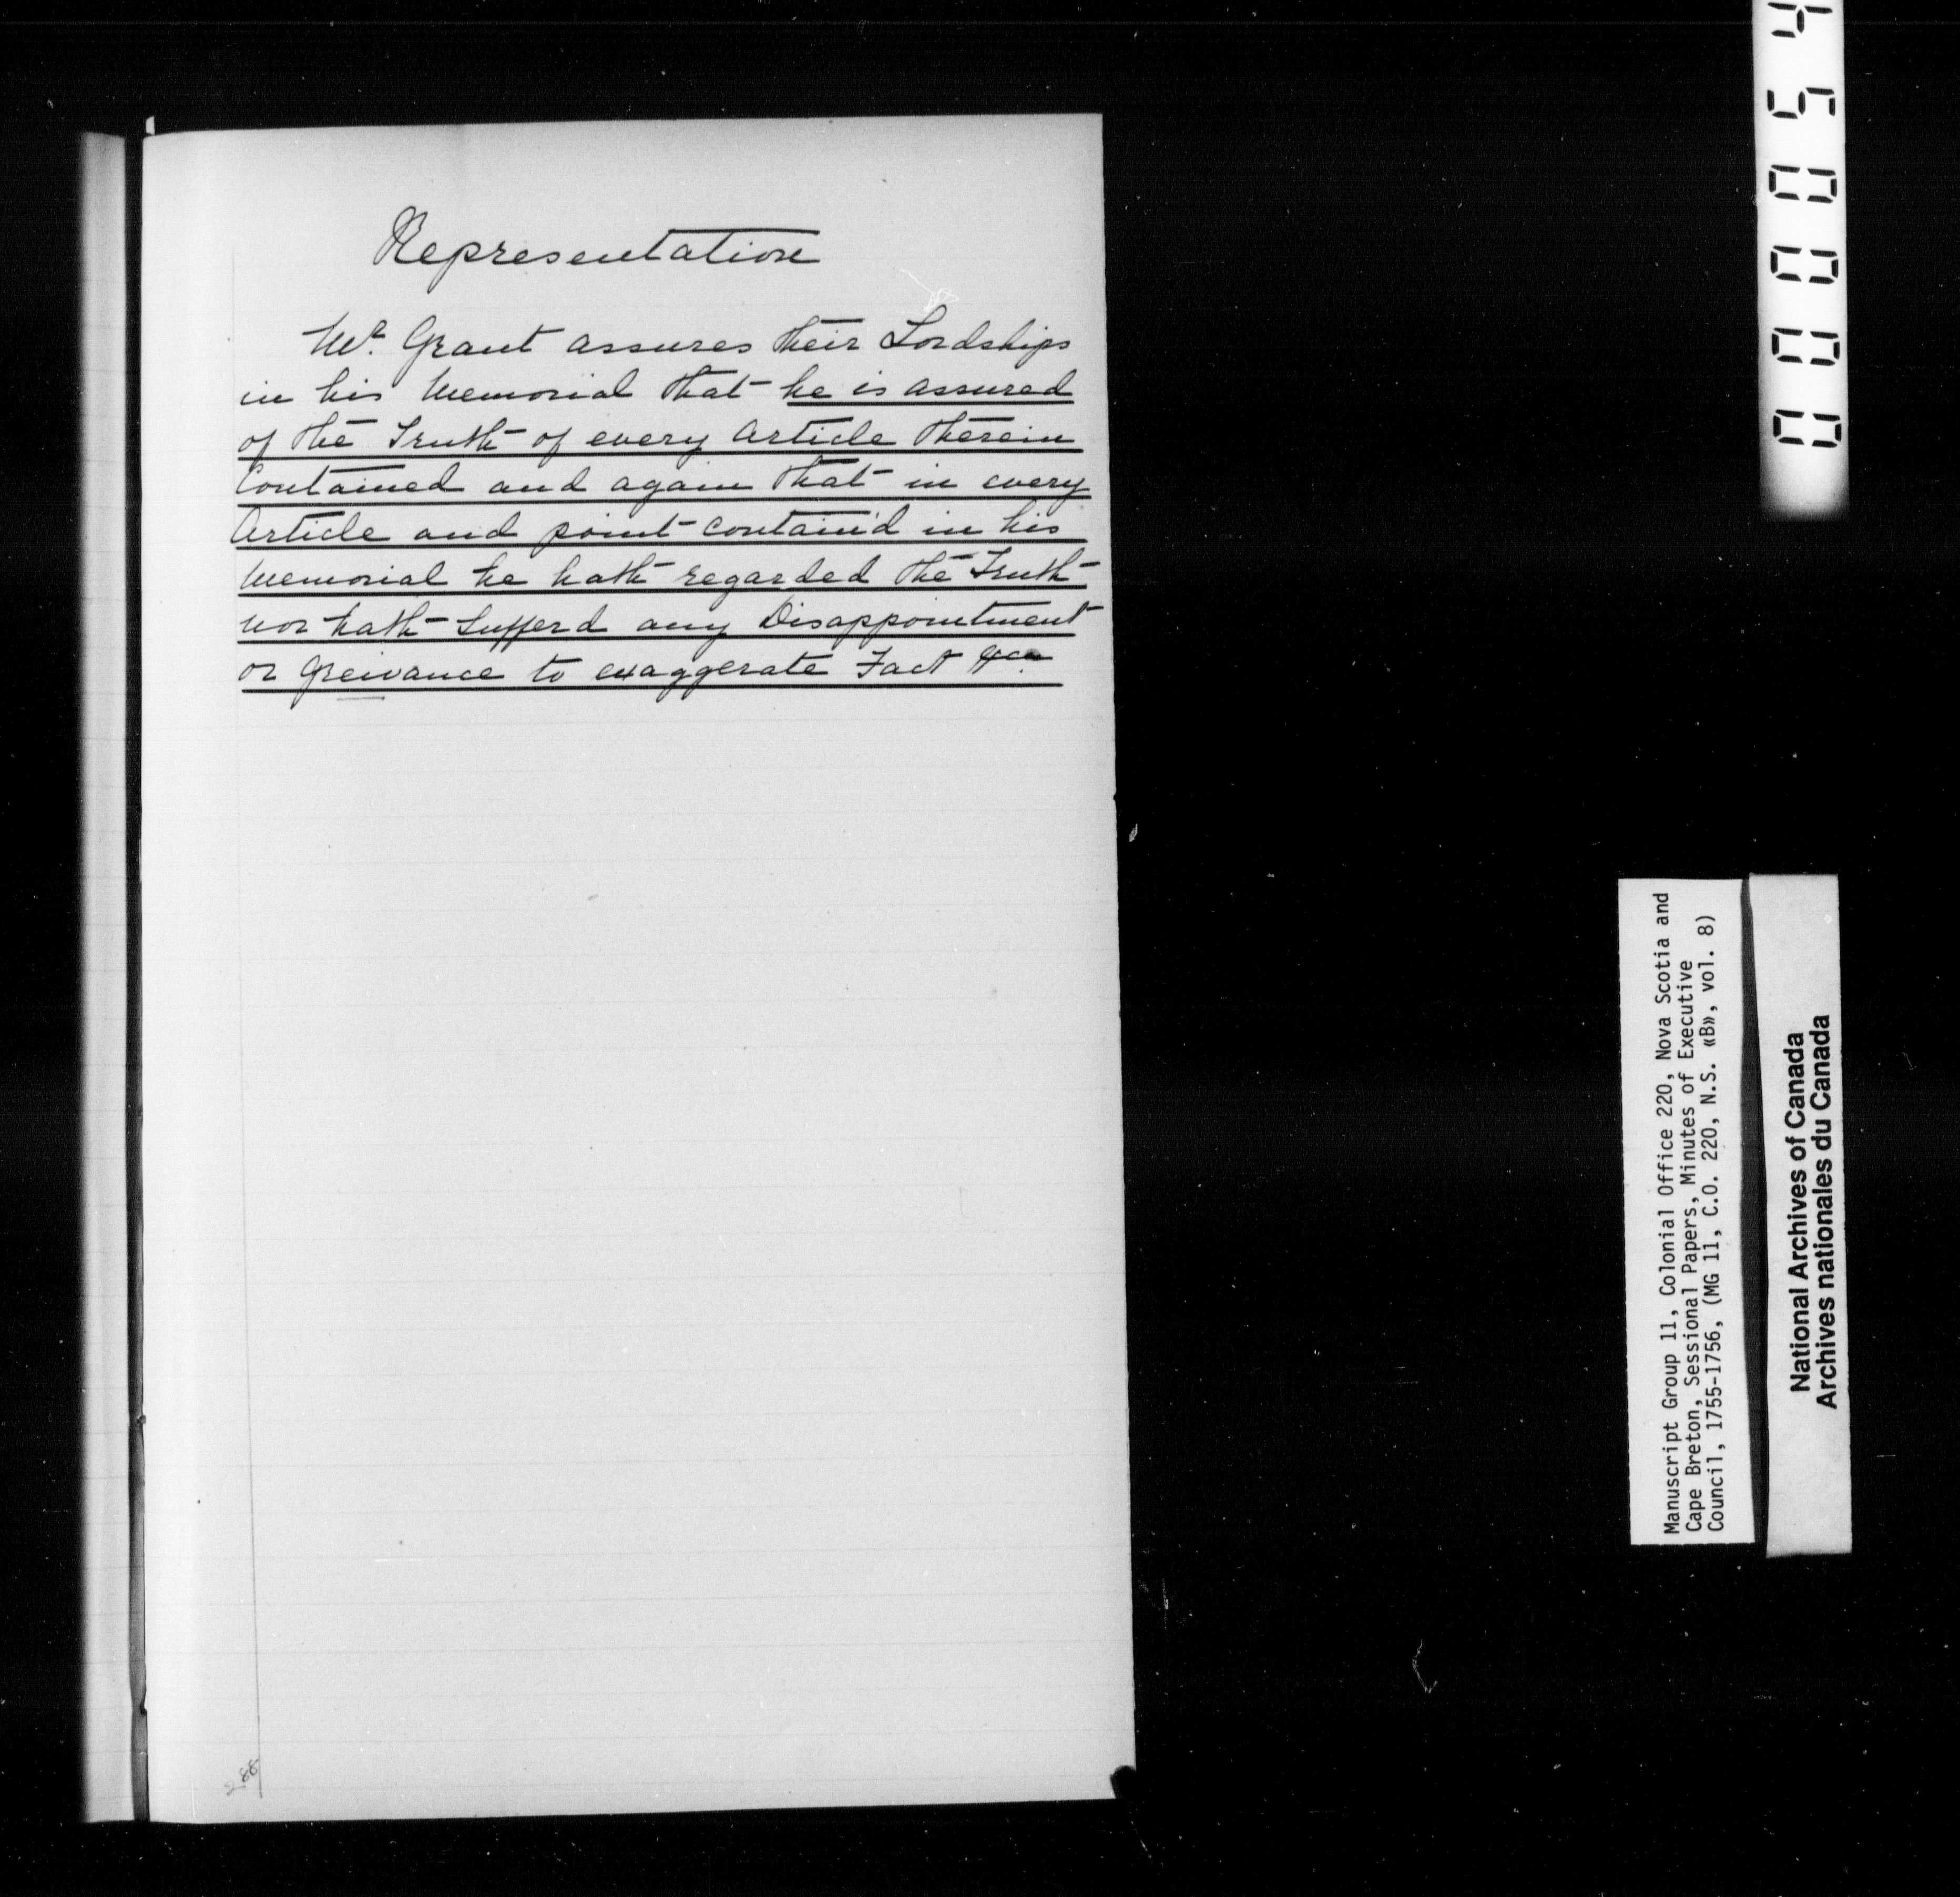 Representation
Mr. Grant assures their Lordships
in his Memorial that he is assured
of the Truth of every Article therein
Contained and again that in every
Article and point contain'd in his
Memorial he hath regarded the Truth
nor hath Sufferd any Disappointment
or Greivance to exaggerate Fact &ca.
288
000054
Manuscript Group 11, Colonial Office 220, Nova Scotia and
Cape Breton, Sessional Papers, Minutes of Executive
Council, 1755-1756, (MG 11, C.O. 220, N.S. «B», vol. 8)
National Archives of Canada
Archives nationales du Canada